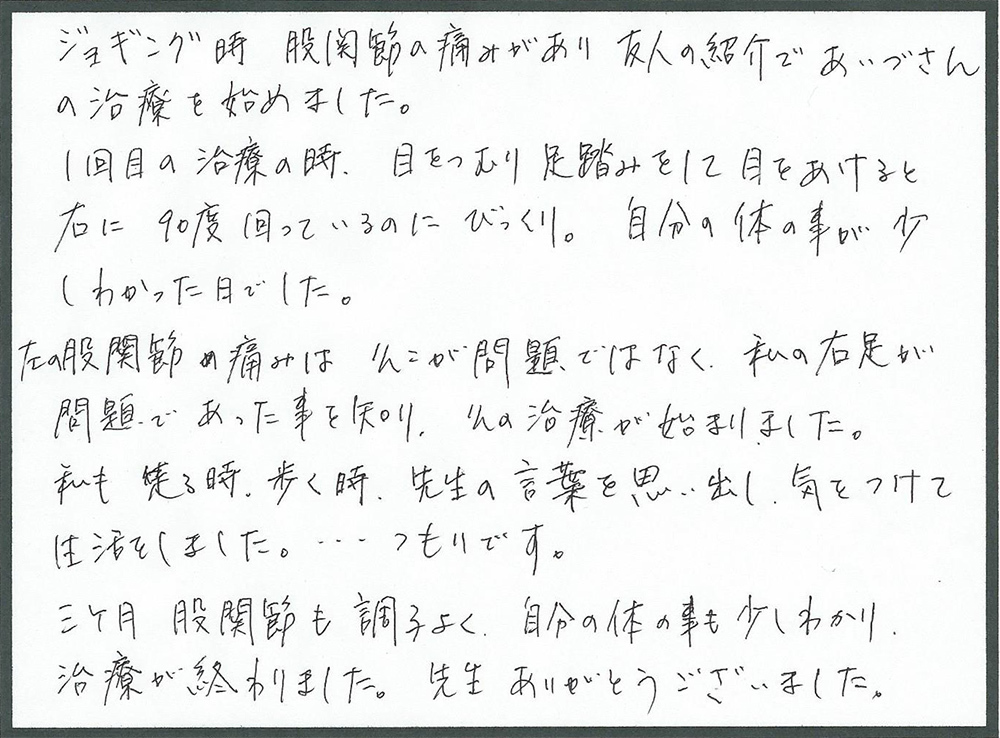 ジョギング時 股関節の痛みがあり 友人の紹介で あいづさん
の治療を始めました。
1回目の治療の時、目をつむり足踏みをして目をあけると
右に 90度回っているのに びっくり。 自分の体の事が少
しわかった日でした。
左の股関節の痛みは そこが問題ではなく、私の右足が
問題であった事を知り、その治療が始まりました。
私も 走る時、歩く時、先生の言葉を思い出し、気をつけて
生活をしました。…つもりです。
三ヶ月 股関節も調子よく、自分の体の事も少しわかり、
治療が終わりました。 先生 ありがとうございました。